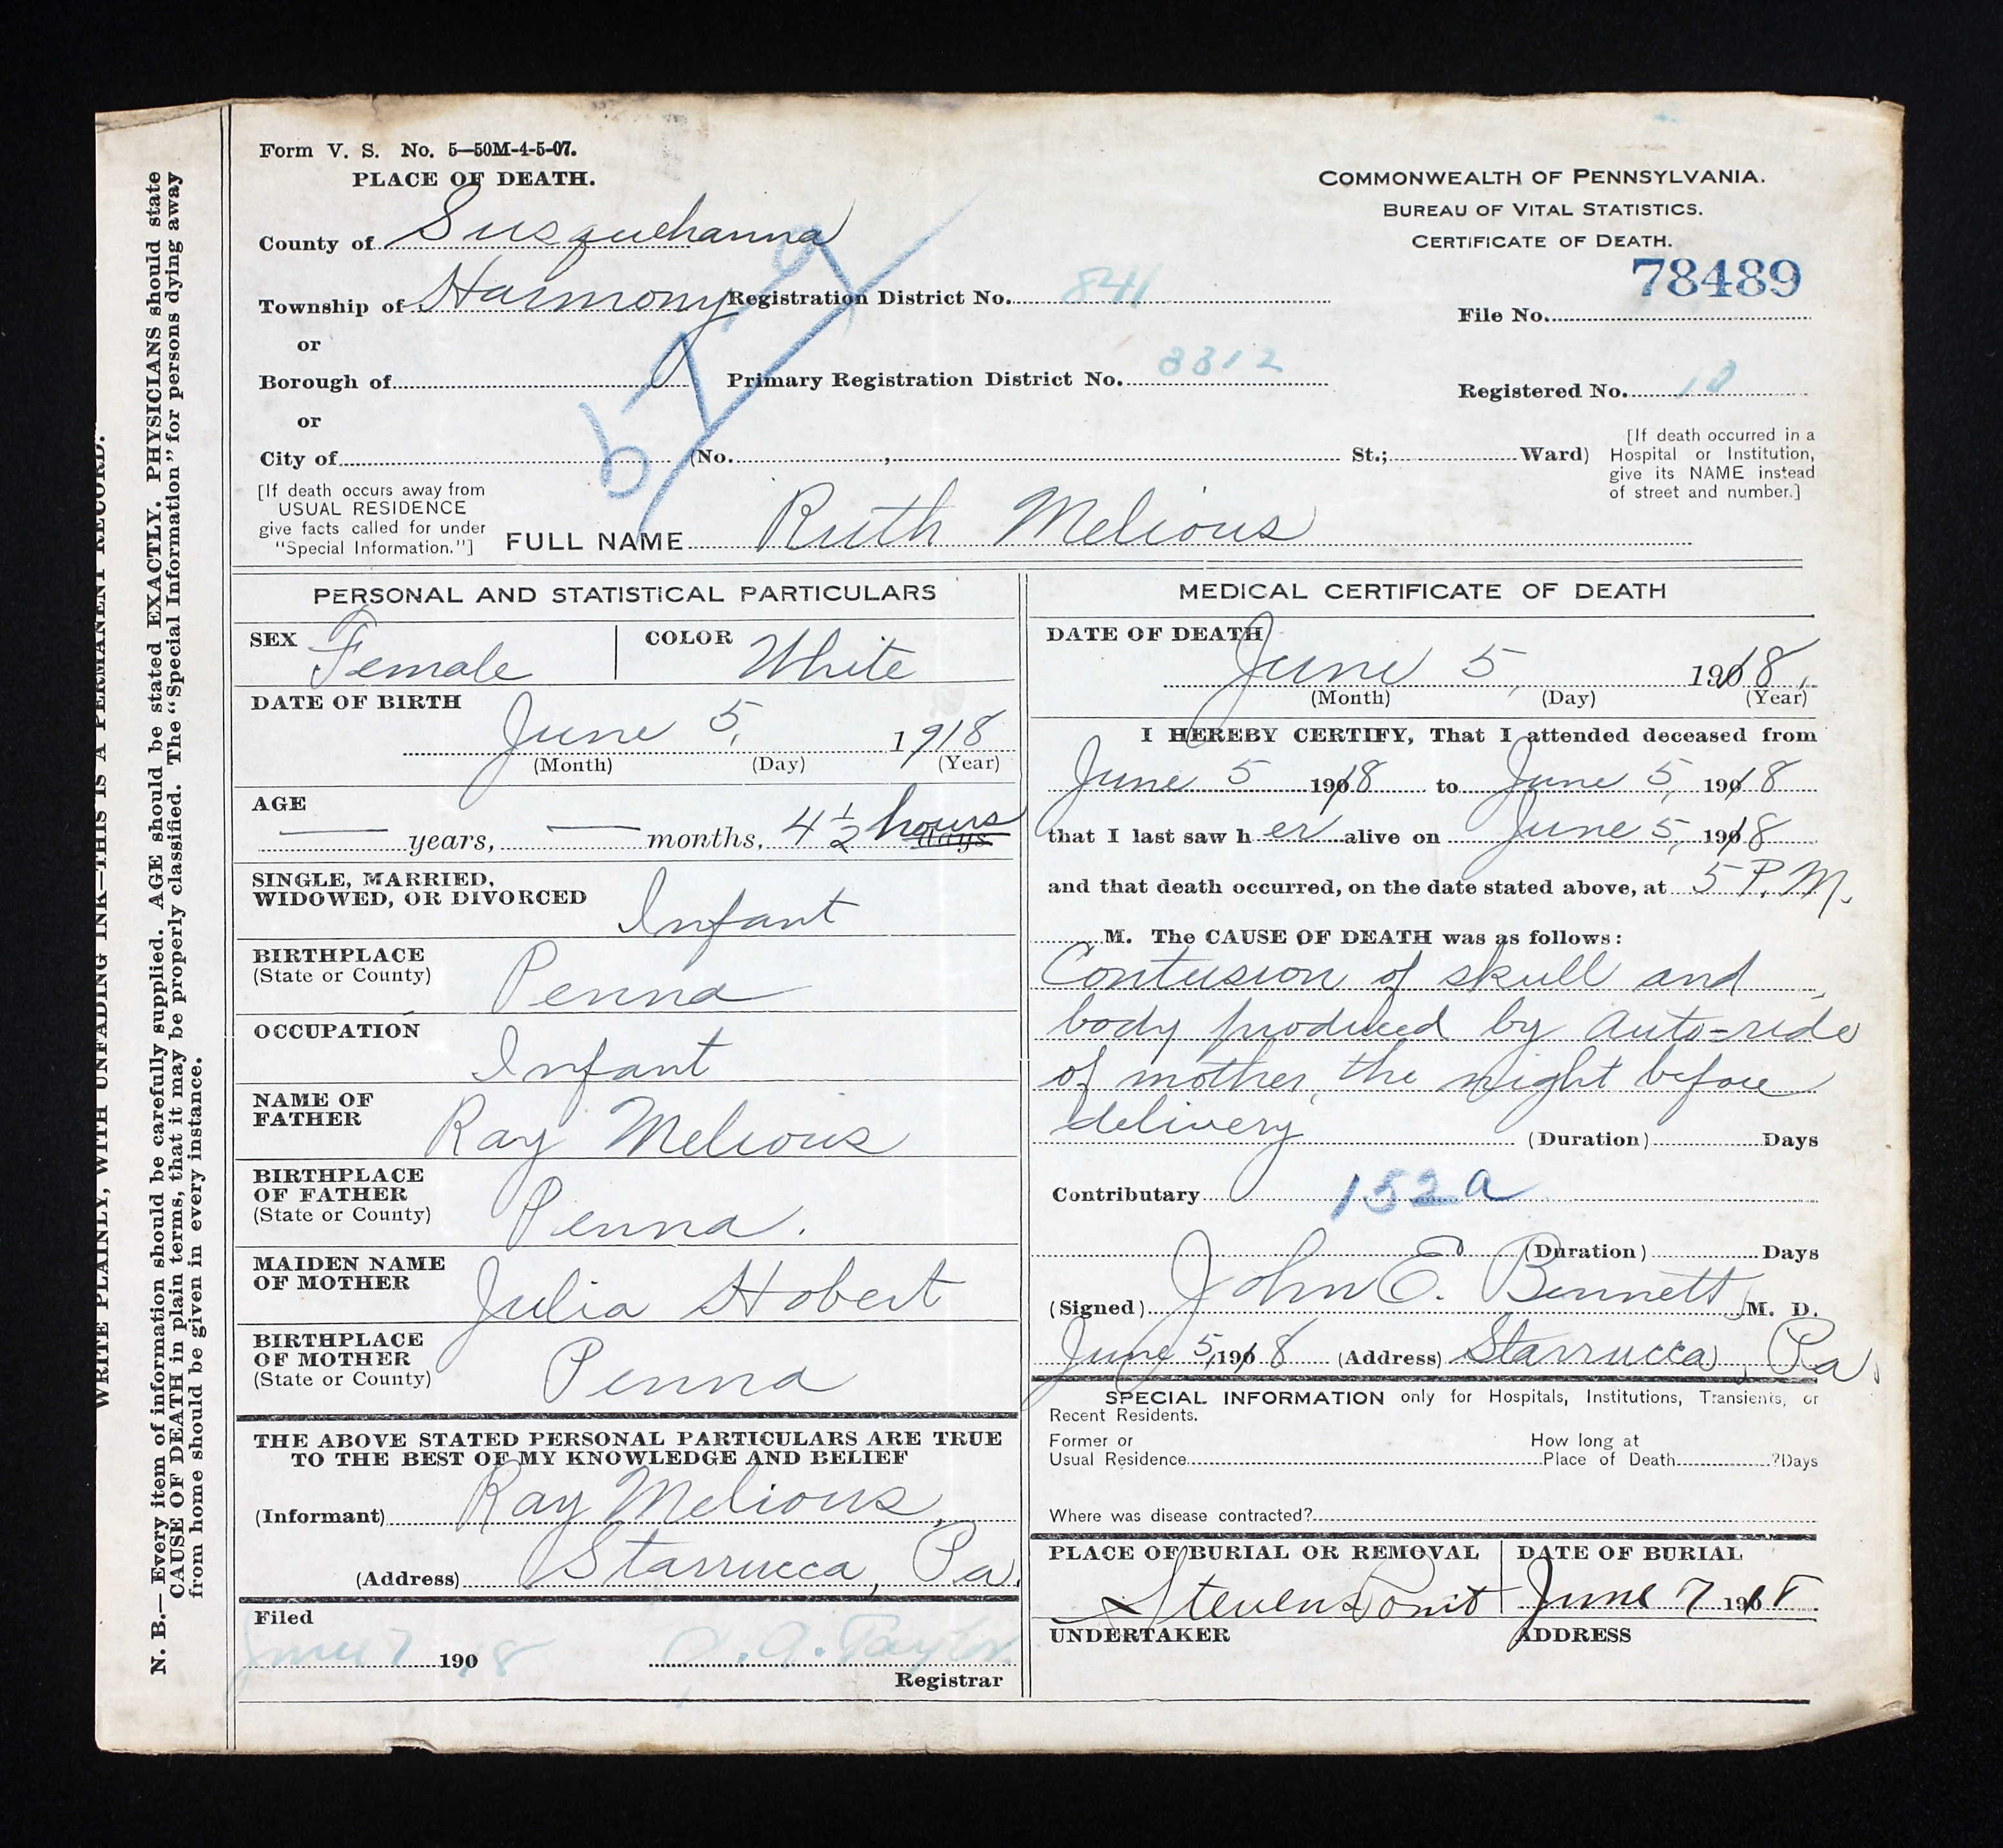 Form V. S. No. 5—50M-4-5-07.
PLACE OF DEATH.
COMMONWEALTH OF PENNSYLVANIA.
BUREAU OF VITAL STATISTICS.
CERTIFICATE OF DEATH.
County of Susquehanna
78489
Township of Harmony Registration District No. 841
File No.
or
Borough of Primary Registration District No. 3312
Registered No. 10
or
City of (No. , St.; Ward)
[If death occurred in a
Hospital or Institution,
give its NAME instead
of street and number.]
[If death occurs away from
USUAL RESIDENCE
give facts called for under
"Special Information."]
FULL NAME Ruth Melious
PERSONAL AND STATISTICAL PARTICULARS
SEX Female COLOR White
DATE OF BIRTH
June 5, 1918
(Month) (Day) (Year)
AGE
— years, — months, 4 1/2 hours days
SINGLE, MARRIED,
WIDOWED, OR DIVORCED Infant
BIRTHPLACE
(State or County) Penna
OCCUPATION
Infant
NAME OF
FATHER Ray Melious
BIRTHPLACE
OF FATHER
(State or County) Penna.
MAIDEN NAME
OF MOTHER Julia Hobert
BIRTHPLACE
OF MOTHER
(State or County) Penna
THE ABOVE STATED PERSONAL PARTICULARS ARE TRUE
TO THE BEST OF MY KNOWLEDGE AND BELIEF
(Informant) Ray Melious,
(Address) Starrucca, Pa.
Filed
June 7 190 18 Taylor
Registrar
MEDICAL CERTIFICATE OF DEATH
DATE OF DEATH
June 5, 1918.
(Month) (Day) (Year)
I HEREBY CERTIFY, That I attended deceased from
June 5 1918 to June 5, 1918
that I last saw her alive on June 5, 1918
and that death occurred, on the date stated above, at 5 P.M.
M. The CAUSE OF DEATH was as follows:
Contusion of skull and
body produced by auto-ride
of mother, the night before
delivery (Duration) Days
Contributary 152a
(Duration) Days
(Signed) John E. Bennett, M. D.
June 5, 1918 (Address) Starrucca, Pa.
SPECIAL INFORMATION only for Hospitals, Institutions, Transients, or
Recent Residents.
Former or
Usual Residence
How long at
Place of Death ?Days
Where was disease contracted?
PLACE OF BURIAL OR REMOVAL DATE OF BURIAL
Stevens Point June 7 1918
UNDERTAKER ADDRESS
WRITE PLAINLY, WITH UNFADING INK—THIS IS A PERMANENT RECORD.
N. B.—Every item of information should be carefully supplied. AGE should be stated EXACTLY. PHYSICIANS should state
CAUSE OF DEATH in plain terms, that it may be properly classified. The "Special Information" for persons dying away
from home should be given in every instance.